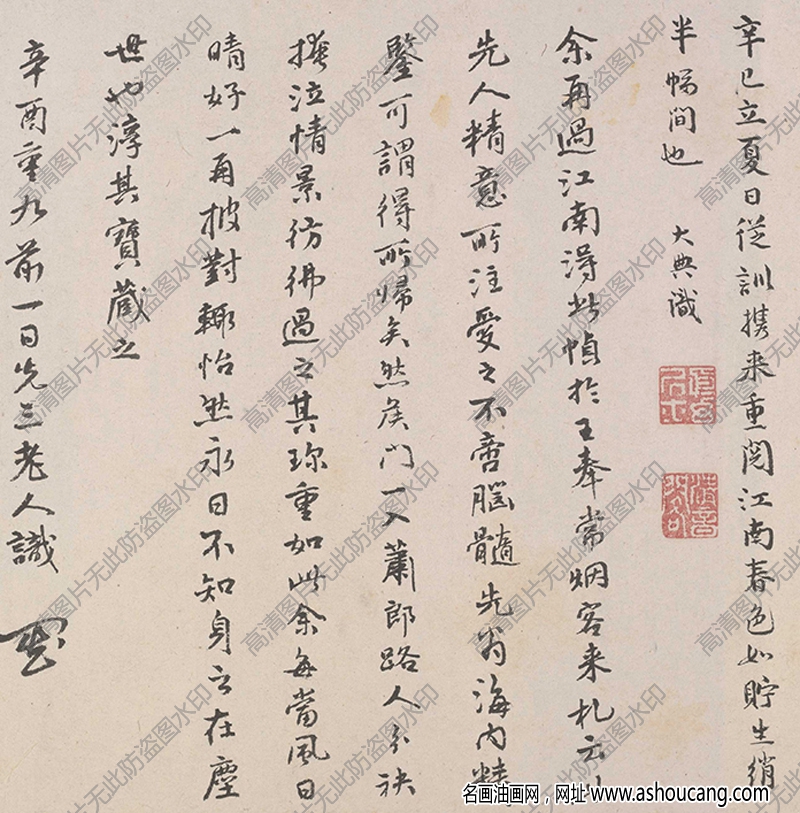 辛巳立夏日從訓携来重閲江南春色如貯生綃
半幅间也 大典識
余再過江南得此幀於王奉常烟客来札云
先人精意所注愛之不啻腦髓先翁海内精
鑒可謂得所歸矣然侯門一入蕭郎路人分袂
掩泣情景彷彿過之其珍重如此余每當風日
晴好一再披對輒怡然永日不知身之在塵
世也淳其寶藏之
辛酉重九前一日先三老人識
高清图片无此防盗图水印
名画油画网，网址 www.ashoucang.com